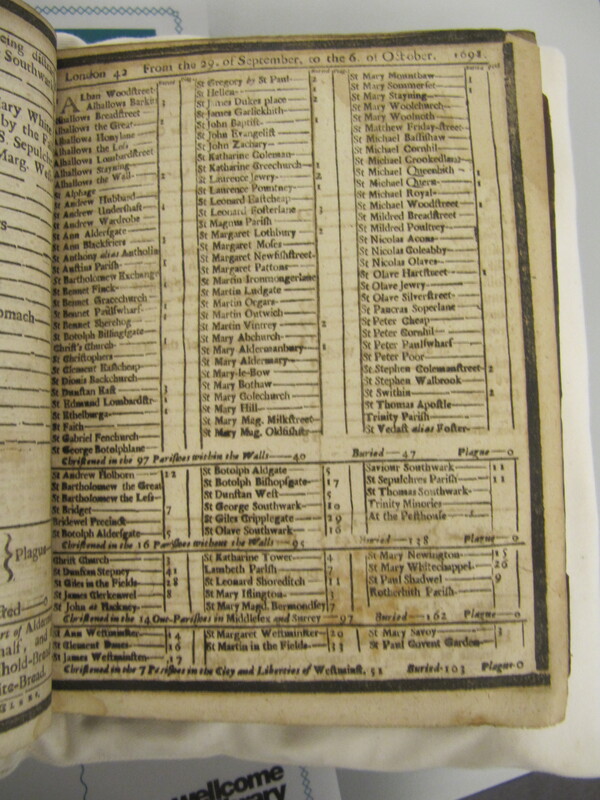 London 42 From the 29. of September, to the 6. of October. 1691.
Alban Woodstreet
Alhallows Barkin
Alhallows Breadstreet
Alhallows the Great
Alhallows Honylane
Alhallows the Less
Alhallows Lombardstreet
Alhallows Stayning
Alhallows the Wall 2
St Alphage
St Andrew Hubbard
St Andrew Undershaft
St Andrew Wardrobe
St Ann Aldersgate
St Ann Blackfriers 3
St Anthony alias Antholin
St Austins Parish
St Bartholomew Exchange
St Bennet Finck
St Bennet Gracechurch
St Bennet Paulswharf
St Bennet Sherehog
St Botolph Billingsgate
Christ's Church
St Christophers
St Clement Eastcheap
St Dionis Backchurch
St Dunstan East 3
St Edmund Lombardstr. 1
St Ethelburga 1
St Faith
St Gabriel Fenchurch
St George Botolphlane
St Gregory by St Paul 2
St Hellen
St James Dukes place 2
St James Garlickhith
St John Baptist 1
St John Evangelist
St John Zachary
St Katharine Coleman
St Katharine Creechurch 1
St Laurence Jewry 2
St Laurence Pountney 1
St Leonard Eastcheap
St Leonard Fosterlane 3
St Magnus Parish
St Margaret Lothbury 2
St Margaret Moses
St Margaret Newfishstreet
St Margaret Pattons
St Martin Ironmongerlane
St Martin Ludgate
St Martin Orgars
St Martin Outwich
St Martin Vintrey 2
St Mary Abchurch
St Mary Aldermanbury 1
St Mary Aldermary
St Mary-le-Bow
St Mary Bothaw
St Mary Colechurch
St Mary Hill
St Mary Mag. Milkstreet
St Mary Mag. Oldfishstr.
St Mary Mounthaw
St Mary Sommerset 1
St Mary Stayning
St Mary Woolchurch
St Mary Woolnoth
St Matthew Friday-street
St Michael Bassishaw
St Michael Cornhil
St Michael Crookedlane
St Michael Queenhith 1
St Michael Quern 1
St Michael Royal
St Michael Woodstreet 1
St Mildred Breadstreet
St Mildred Poultrey
St Nicolas Acons
St Nicolas Coleabby
St Nicolas Olaves
St Olave Hartstreet 1
St Olave Jewry
St Olave Silverstreet
St Pancras Soperlane
St Peter Cheap
St Peter Cornhil
St Peter Paulswharf
St Peter Poor
St Stephen Colemanstreet 2
St Stephen Walbrook
St Swithin 2
St Thomas Apostle
Trinity Parish
St Vedast alias Foster
Christned in the 97 Parishes within the Walls—40 Buried—47 Plague—0
St Andrew Holborn 12
St Bartholomew the Great
St Bartholomew the Less
St Bridget 7
Bridewel Precinct
St Botolph Aldersgate 5
St Botolph Aldgate 5
St Botolph Bishopsgate 17
St Dunstan West 5
St George Southwark 10
St Giles Cripplegate 29
St Olave Southwark 16
Saviour Southwark 11
St Sepulchres Parish 11
St Thomas Southwark
Trinity Minories
At the Pesthouse
Christned in the 16 Parishes without the Walls—95 Buried—138 Plague 0
Christ Church 3
St Dunstan Stepney 41
St Giles in the Fields 28
St James Clerkenwel 8
St John at Hackney
St Katharine Tower 4
Lambeth Parish 7
St Leonard Shoreditch 11
St Mary Islington 3
St Mary Magd. Bermondsey 7
St Mary Newington 15
St Mary Whitechappel 26
St Paul Shadwel 9
Rotherhith Parish
Christned in the 14 Out-Parishes in Middlesex and Surry—97 Buried—162 Plague—0
St Ann Westminster 14
St Clement Danes 16
St James Westminster 17
St Margaret Westminster 20
St Martin in the Fields 33
St Mary Savoy 3
St Paul Covent Garden
Christned in the 7 Parishes in the City and Liberties of Westminst. 51 Buried-103 Plague-0
Southwar
Mary White
by the Fa
S. Sepulch
Marg. We
omach
Plague
0
half, and
hold-Brea
ite-Bread
wellcome
library